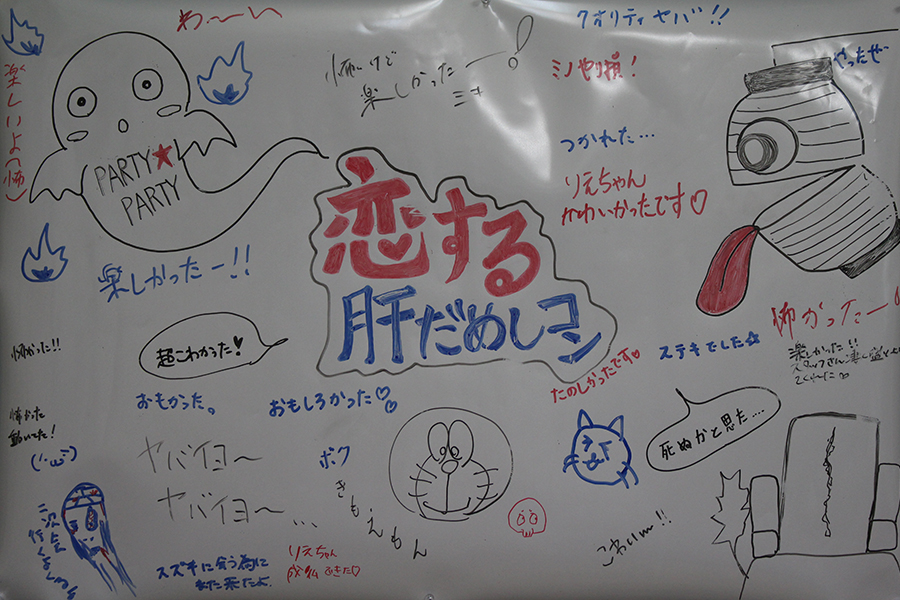 わ～い
クオリティ ヤバ!!
やったぜー
楽しいよ(怖)
怖いけど
楽しかったー!
ミナ
ミノやり損!
PARTY★
PARTY
つかれた…
りえちゃん
かわいかったです♡
恋する
肝だめしコン
楽しかったー!!
怖かったー!
楽しかった!!
怖かった!!
超こわかった!
ステキでした☆
たのしかったです♡
おもかった。
おもしろかった♡
怖かった
死ぬかと思た....
ヤバイヨ～
ヤバイヨ～…
ボク
きもえもん
こわい～!!
スズキに会う為に
また来たよ
りえちゃん